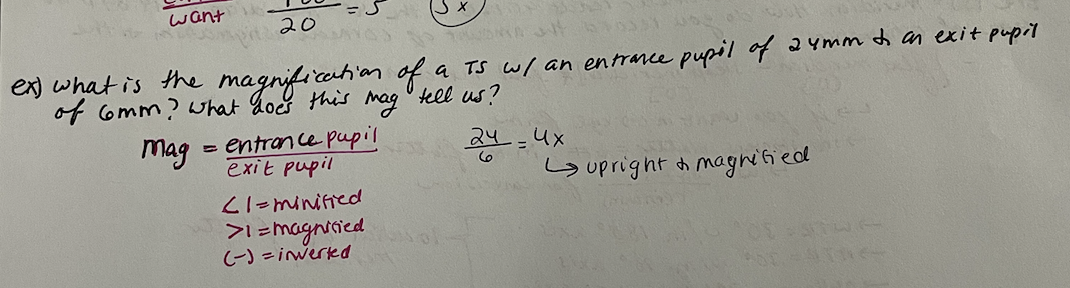 want
20
= 5
5x
ex) what is the magnification of a TS w/ an entrance pupil of 24mm & an exit pupil
of 6mm? what does this mag tell us?
Mag = entrance pupil
exit pupil
24
6
= 4x
↳ upright & magnified
<1 = minified
>1 = magnified
(-) = inverted